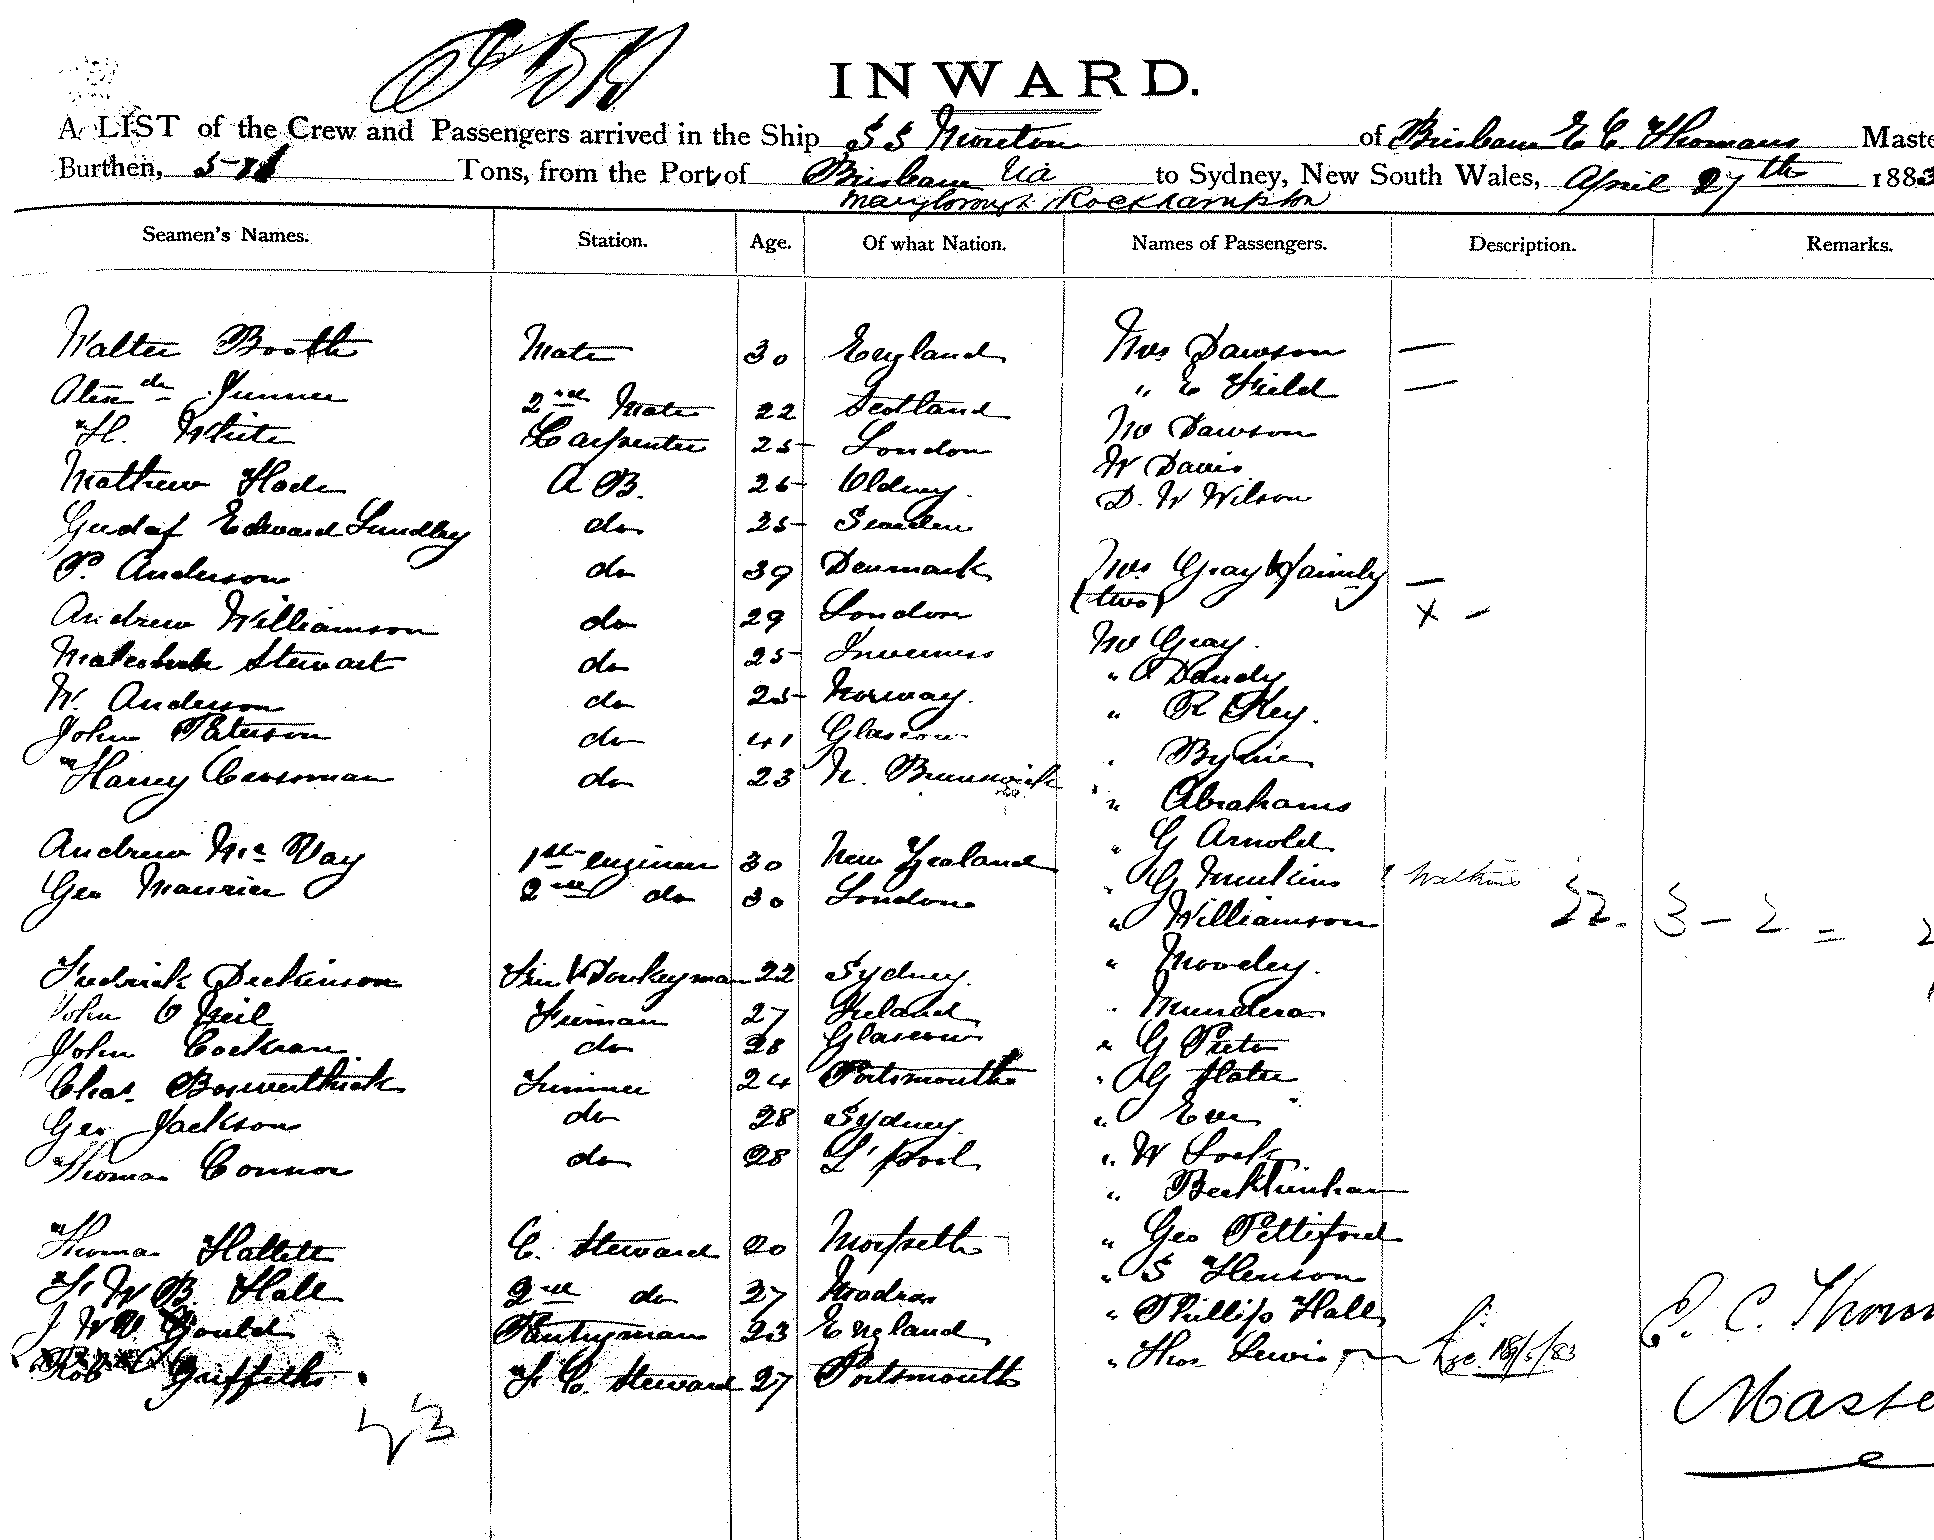 INWARD.
A LIST of the Crew and Passengers arrived in the Ship S S Moreton of Brisbane E C Thomas Maste
Burthen, 511 Tons, from the Port of Brisbane Via to Sydney, New South Wales, April 27th 1883
Maryborough Rockhampton
Seamen's Names. Station. Age. Of what Nation. Names of Passengers. Description. Remarks.
Walter Booth Mate 30 England Mrs Dawson —
Alexdr 2nd Mate 22 Scotland " E Field —
H. White Carpenter 25 London Mr Dawson
Mathew A B. 26 W Davis
Gustaf Edward Lundley do 25 Sweden D. W Wilson
P. Anderson do 39 Denmark Mrs Gray & family —
(two) x -
Andrew Williamson do 29 London Mr Gray.
Stewart do 25 Inverness " Dandy
W. Anderson do 25 Norway. " R Key.
John Paterson do 41 Glascow " Byrne
Harry do 23 N. Brunswick " Abrahams
" G Arnold
Andrew McVay 1st engineer 30 New Zealand " G Munkins ? Watkins
Geo Maurier 2nd do 30 London " Williamson 22. 3 - 2 =
Fredrick Deckinson Fire & Donkeyman 22 Sydney. " Mowdey.
John O Neil Fireman 27 Ireland " Mundera
John Cockran do 28 Glascow " G
Chas. Trimmer 24 Portsmouth " G Slater
Geo Jackson do 28 Sydney. " Eve
Thomas Connor do 28 L'pool " W Lock
" Beckkinham
Thomas Hallett C. Steward 20 Morpeth " Geo Pettiford
F W B Hall 2nd do 37 Madras " S Henson
J W Gould Pantryman 23 England " Phillip Hall E. C. Thom
Rob Griffiths F. C. Steward 27 Portsmouth " Thos Lewis 18/5/83
Maste